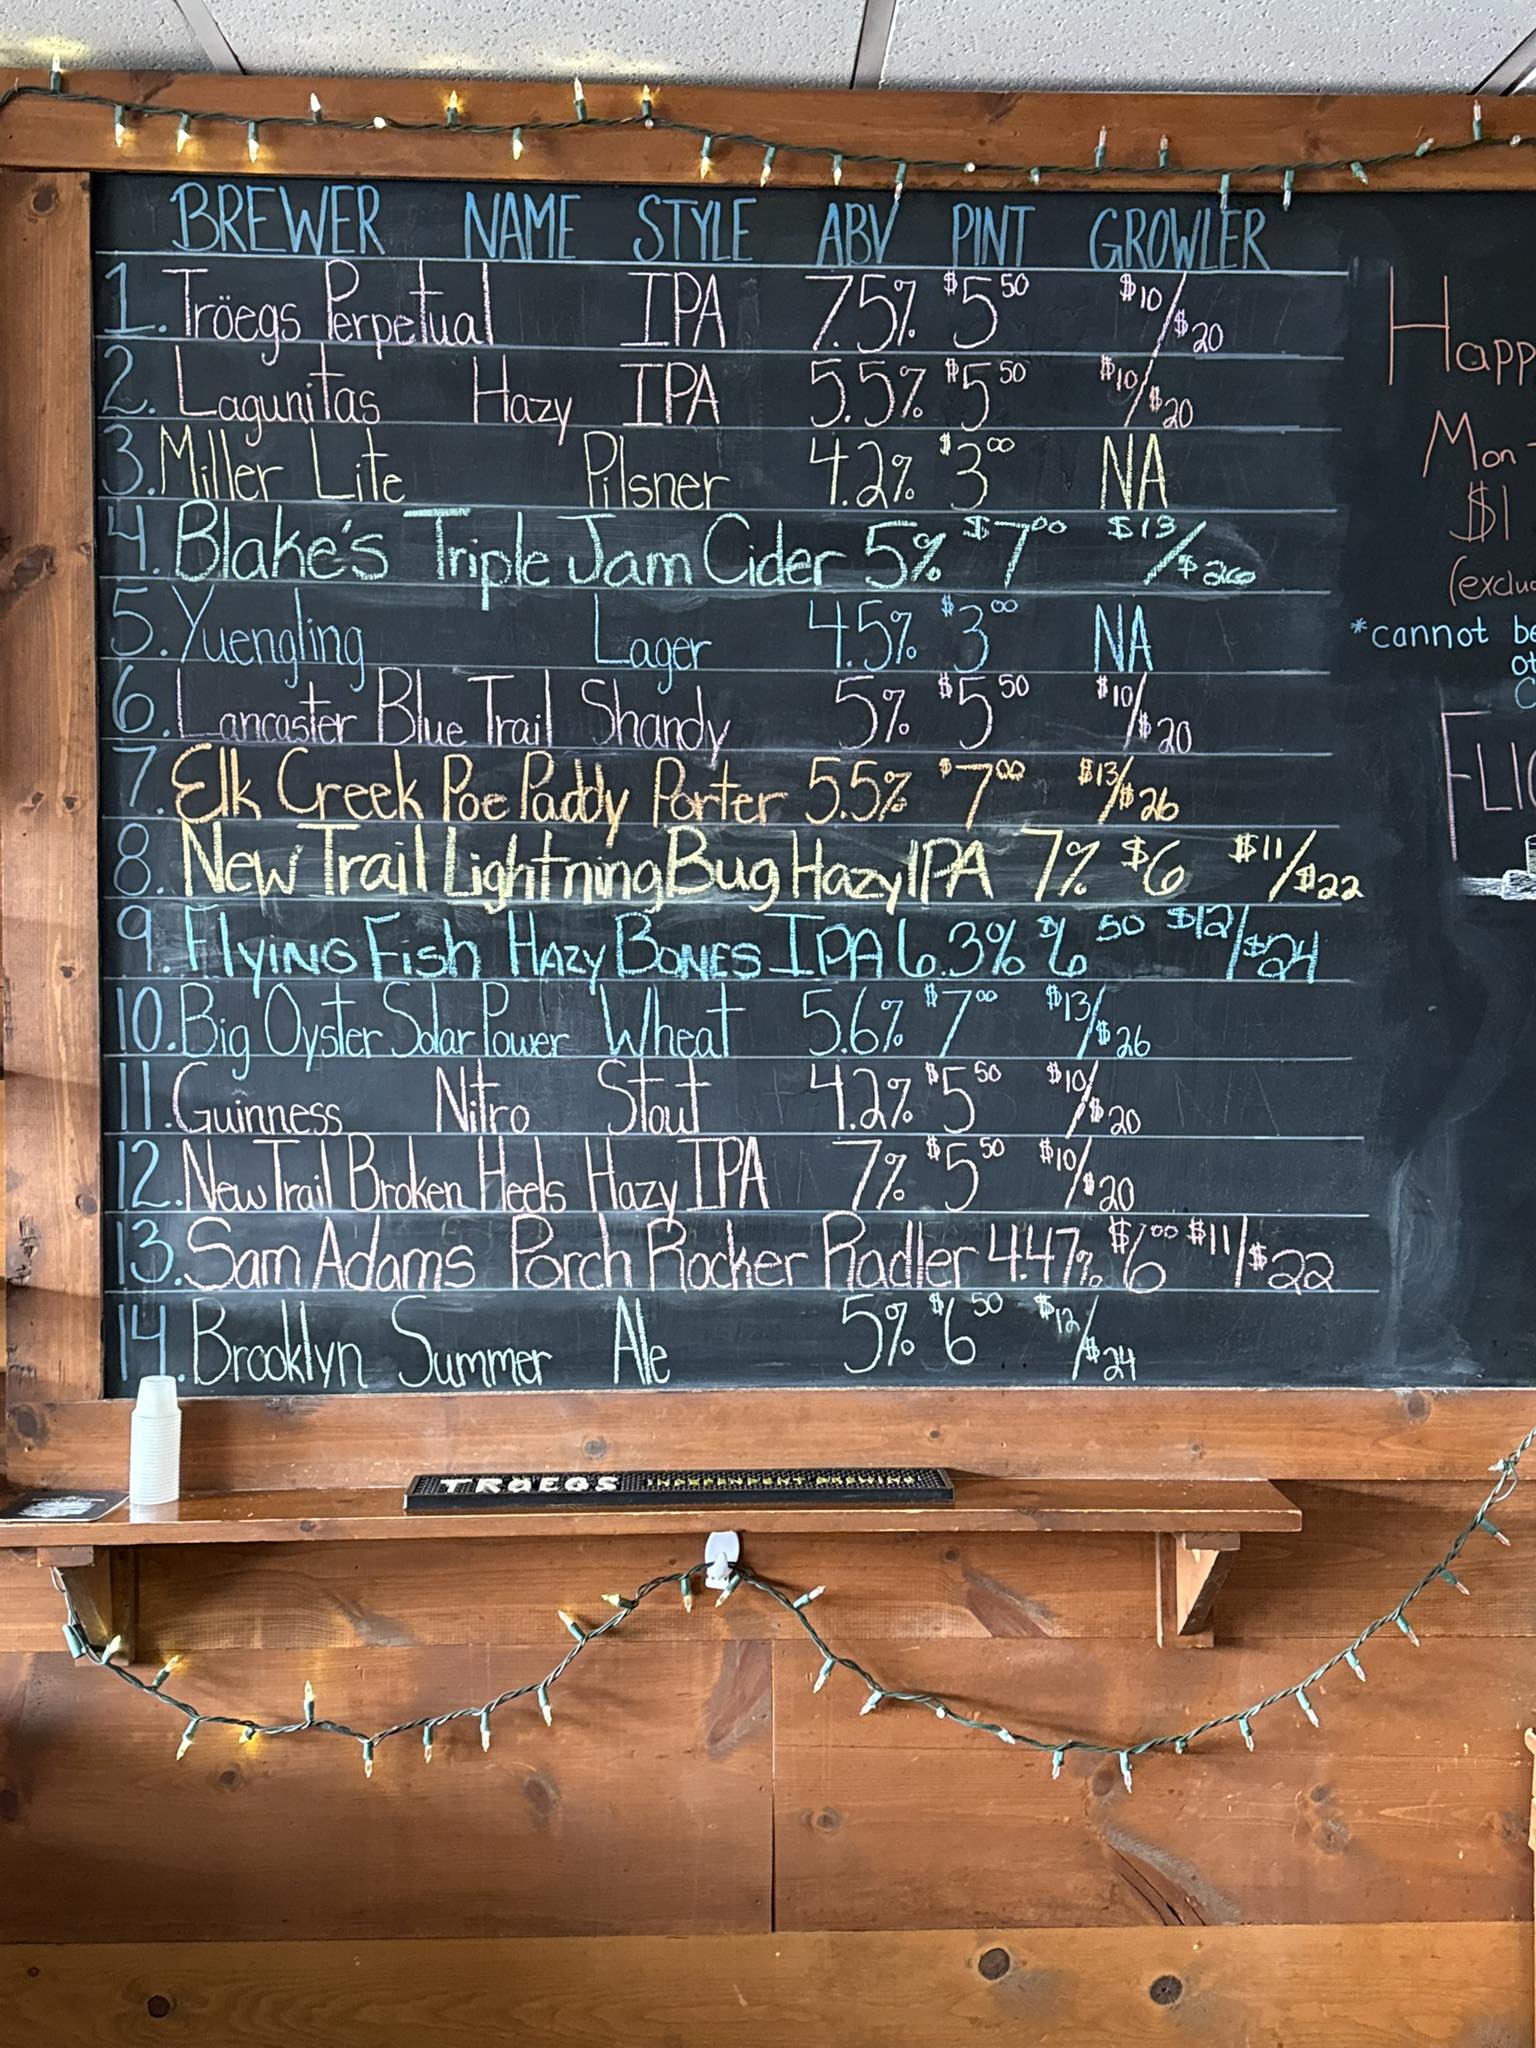 BREWER NAME STYLE ABV PINT GROWLER
1. Tröegs Perpetual IPA 7.5% $5 50 $10/$20
2. Lagunitas Hazy IPA 5.5% $5 50 $10/$20
3. Miller Lite Pilsner 4.2% $3 00 NA
4. Blake's Triple Jam Cider 5% $7 00 $13/$26
5. Yuengling Lager 4.5% $3 00 NA
6. Lancaster Blue Trail Shandy 5% $5 50 $10/$20
7. Elk Creek Poe Paddy Porter 5.5% $7 00 $13/$26
8. New Trail Lightning Bug Hazy IPA 7% $6 $11/$22
9. Flying Fish Hazy Bones IPA 6.3% $6 50 $12/$24
10. Big Oyster Solar Power Wheat 5.6% $7 00 $13/$26
11. Guinness Nitro Stout 4.2% $5 50 $10/$20
12. New Trail Broken Heels Hazy IPA 7% $5 50 $10/$20
13. Sam Adams Porch Rocker Radler 4.47% $6 00 $11/$22
14. Brooklyn Summer Ale 5% $6 50 $12/$24
Happ
Mon -
$1
(exclu
*cannot be
ot
FLIG
TRÖEGS INDEPENDENT BREWING